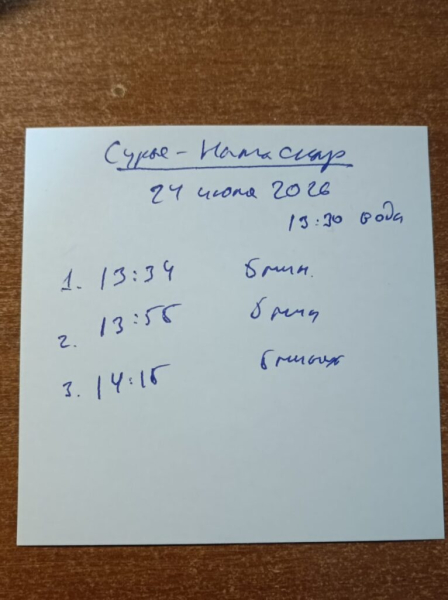 Сурья-Намаскар
24 июля 2026
13:30 вода
1. 13:34 5 мин.
2. 13:55 5 мин
3. 14:15 5 минут